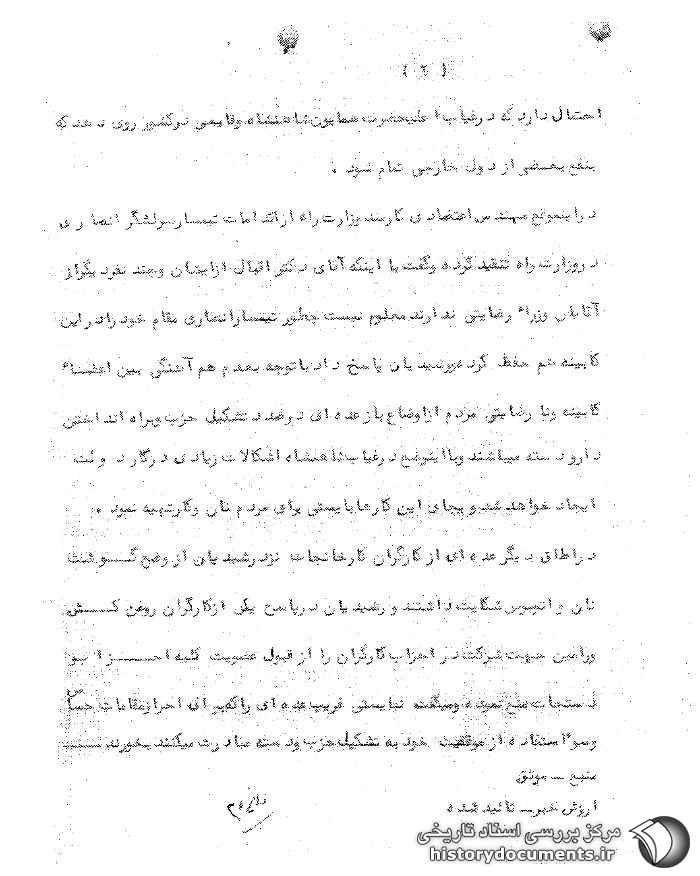 ( ۲ )
احتمال دارد که در غیاب اعلیحضرت همایون شاهنشاه وقایعی در کشور روی دهد که
بنفع بعضی از دول خارجی تمام شود .
در اینموقع مهندس اعتضادی کارمند وزارت راه از اقدامات تیمسار سرلشگر انصاری
در وزارت راه تنقید کرده و گفت با اینکه آقای دکتر اقبال از ایشان و چند نفر دیگر از
آقایان وزراء رضایتی ندارند معلوم نیست چطور تیمسار انصاری مقام خود را در این
کابینه هم حفظ کرده رشیدیان پاسخ داد با توجه بعدم هم آهنگی بین اعضاء
کابینه و نا رضایتی مردم از اوضاع باز عده ای درصدد تشکیل حزب و براه انداختن
دار و دسته میباشند و با اینوضع در غیاب شاهنشاه اشکالات زیادی در کار دولت
ایجاد خواهد شد و بجای این کارها بایستی برای مردم نان و کار تهیه نمود .
در اطاق دیگر عده ای از کارگران کارخانجات نزد رشیدیان از وضع گوشت
نان و اتوبوس شکایت داشتند و رشیدیان در پاسخ یکی از کارگران روغن کشی
ورامین جهت شرکت در احزاب کارگران را از قبول عضویت کلیه احزاب و
دستجات منع نموده و میگفت نبایستی فریب عده ای را که برای احراز مقامات حساس
و سوء استفاده از موقعیت خود به تشکیل حزب و دسته مبادرت میکنند بخورند
منبع ـ موثق
ارزش خبر ـ تائید شده
مرکز بررسی اسناد تاریخی
historydocuments.ir